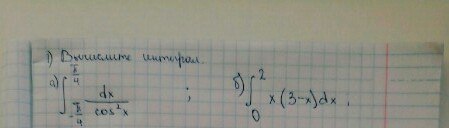 1) Вычислите интеграл.
а) ∫_{-π/4}^{π/4} dx/cos²x ; б) ∫_0^2 x(3-x)dx,